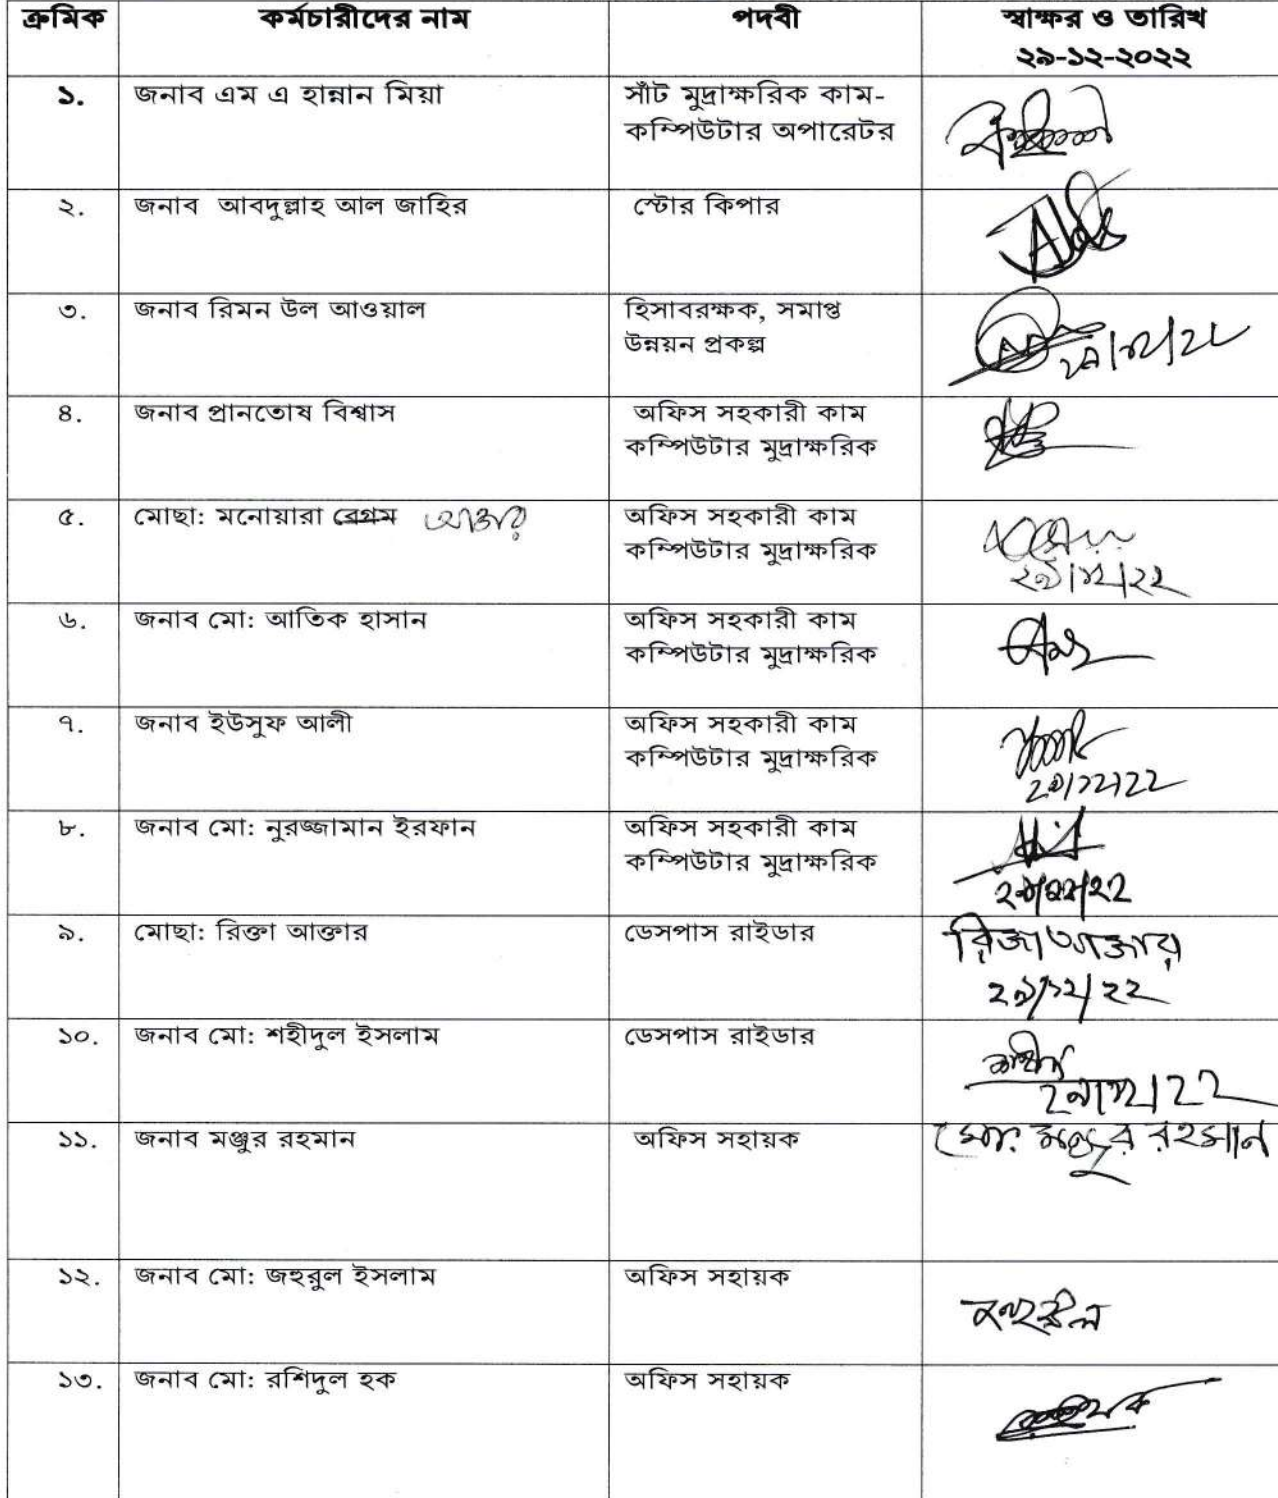 ক্রমিক কর্মচারীদের নাম পদবী স্বাক্ষর ও তারিখ
২৯-১২-২০২২
১. জনাব এম এ হান্নান মিয়া সাঁট মুদ্রাক্ষরিক কাম-
কম্পিউটার অপারেটর
২. জনাব আবদুল্লাহ আল জাহির স্টোর কিপার
৩. জনাব রিমন উল আওয়াল হিসাবরক্ষক, সমাপ্ত
উন্নয়ন প্রকল্প
২৯/১২/২২
৪. জনাব প্রানতোষ বিশ্বাস অফিস সহকারী কাম
কম্পিউটার মুদ্রাক্ষরিক
৫. মোছা: মনোয়ারা বেগম আক্তার অফিস সহকারী কাম
কম্পিউটার মুদ্রাক্ষরিক
২৯/১২/২২
৬. জনাব মো: আতিক হাসান অফিস সহকারী কাম
কম্পিউটার মুদ্রাক্ষরিক
৭. জনাব ইউসুফ আলী অফিস সহকারী কাম
কম্পিউটার মুদ্রাক্ষরিক
২৯/১২/২২
৮. জনাব মো: নুরজ্জামান ইরফান অফিস সহকারী কাম
কম্পিউটার মুদ্রাক্ষরিক
২৯/১২/২২
৯. মোছা: রিক্তা আক্তার ডেসপাস রাইডার রিক্তা আক্তার
২৯/১২/২২
১০. জনাব মো: শহীদুল ইসলাম ডেসপাস রাইডার শহীদ
২৯/১২/২২
১১. জনাব মঞ্জুর রহমান অফিস সহায়ক মো: মঞ্জুর রহমান
১২. জনাব মো: জহুরুল ইসলাম অফিস সহায়ক
১৩. জনাব মো: রশিদুল হক অফিস সহায়ক